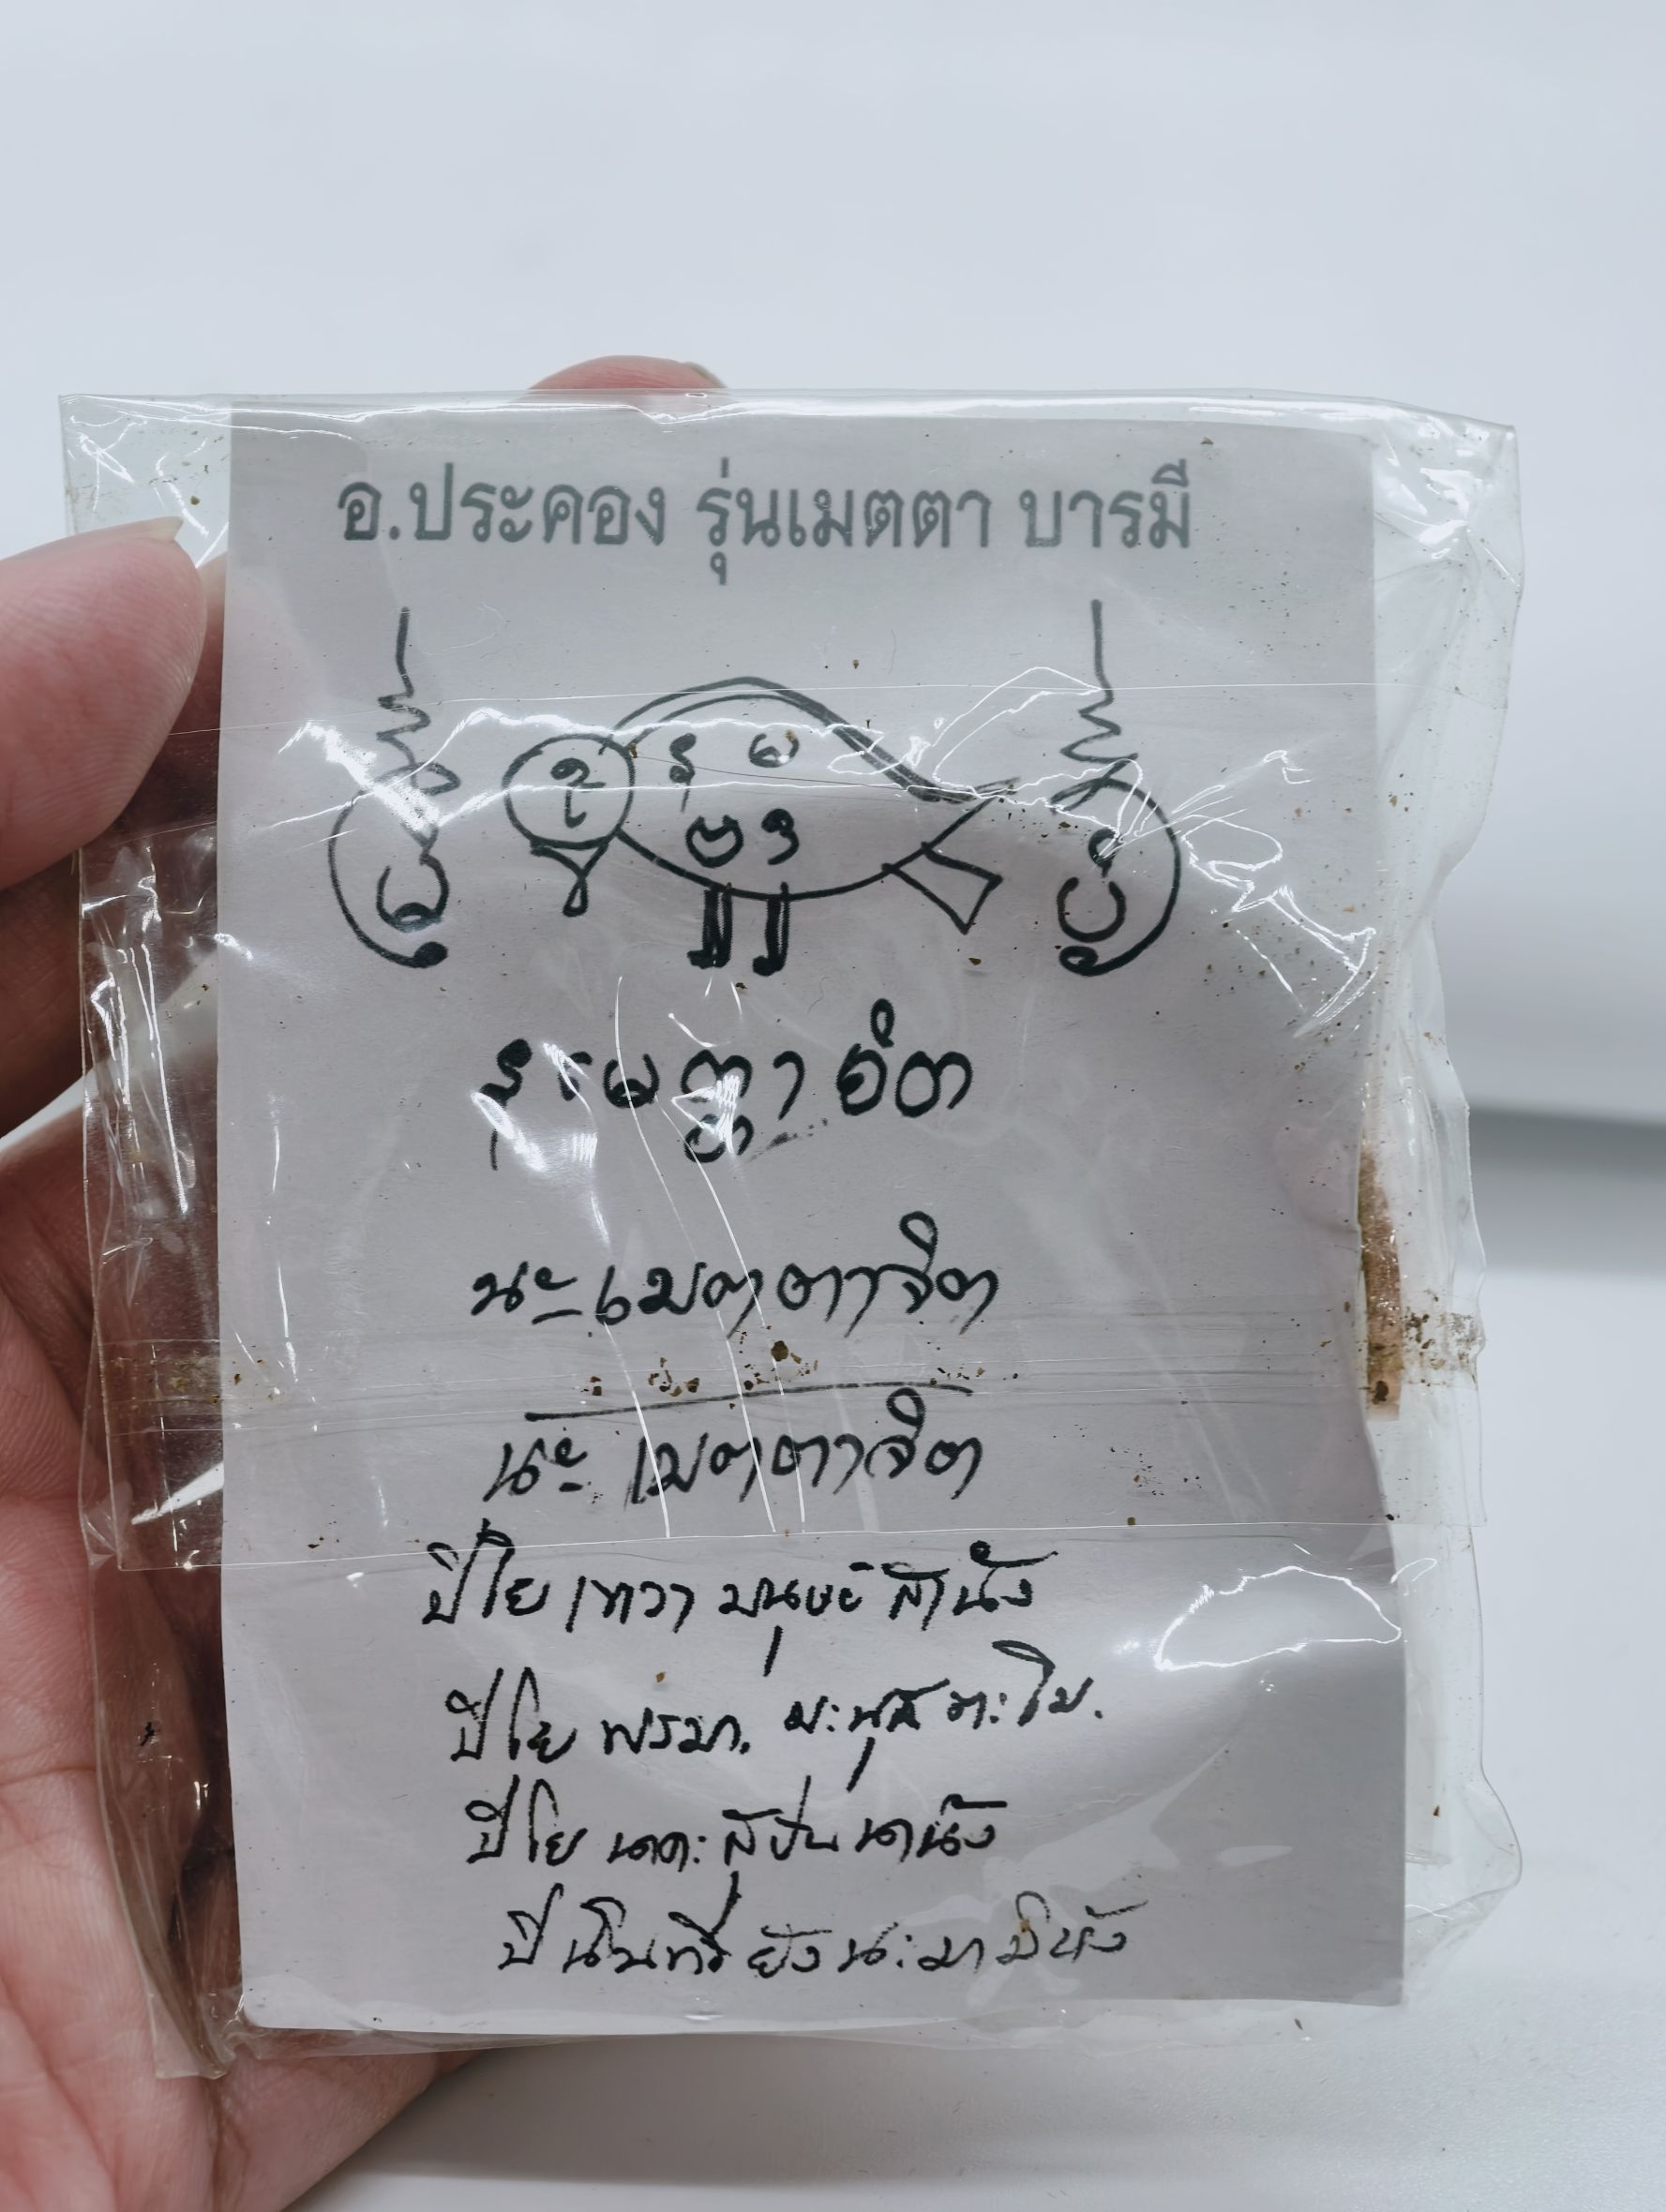 อ.ประคอง รุ่นเมตตา บารมี
นะเมตตาจิต
นะ เมตตาจิต
ปิโย เทวา มนุษย์ สานัง
ปิโย พรมา. มะนุสสะ ตะโม.
ปิโย นาคะ สุปันนานัง
ปินินทรี ยังนะมามิหัง